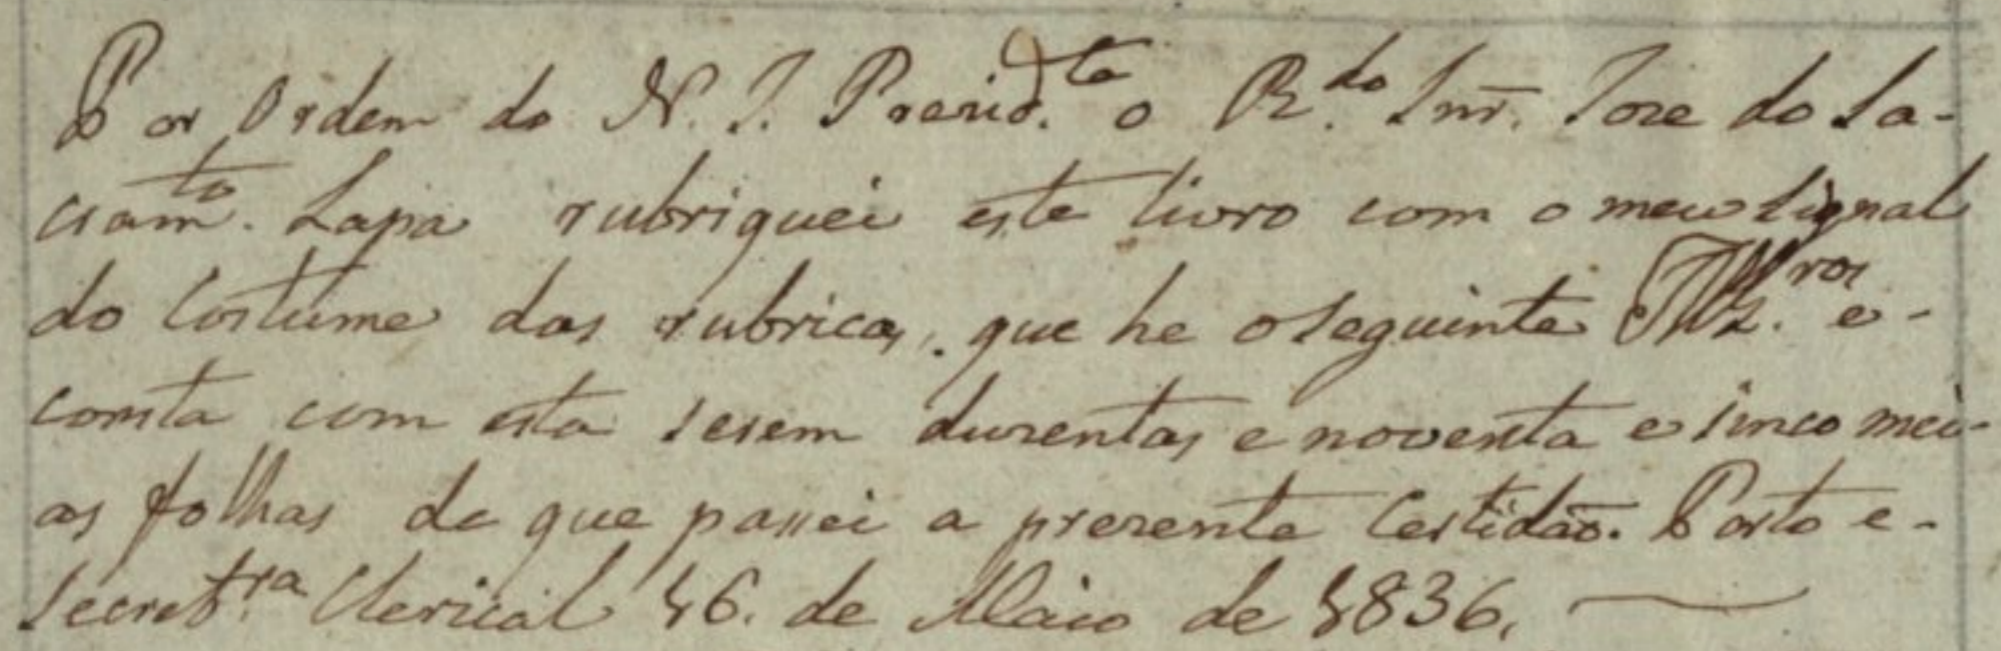 Por Ordem do N. I. Prezid.te o R.do Snr. Joze do Sa-
cram.to Lapa rubriquei este livro com o meu signal
do Costume das rubricas, que he o seguinte e-
consta com esta serem duzentas e noventa e sinco mei-
as folhas de que passei a prezente Certidão. Porto e-
Secret.ra Clerical 16. de Maio de 1836.